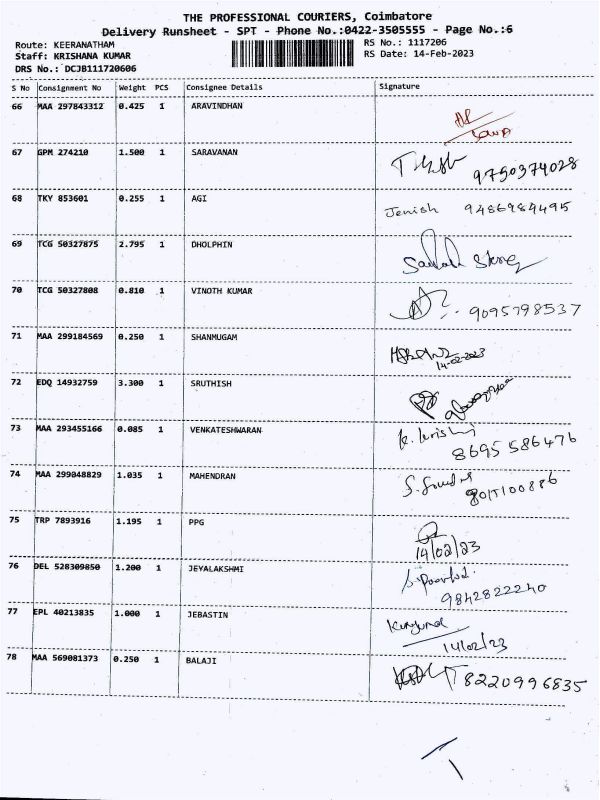 THE PROFESSIONAL COURIERS, Coimbatore
Delivery Runsheet - SPT - Phone No.:0422-3505555 - Page No.:6
Route: KEERANATHAM
RS No.: 1117206
Staff: KRISHANA KUMAR
RS Date: 14-Feb-2023
DRS No.: DCJB111720606
S No Consignment No Weight PCS Consignee Details Signature
66 MAA 297843312 0.425 1 ARAVINDHAN
67 GPM 274210 1.500 1 SARAVANAN 9750374028
68 TKY 853601 0.255 1 AGI Jenish 9486984495
69 TCG 50327875 2.795 1 DHOLPHIN
70 TCG 50327808 0.810 1 VINOTH KUMAR 9095798537
71 MAA 299184569 0.250 1 SHANMUGAM
14-02-2023
72 EDQ 14932759 3.300 1 SRUTHISH
73 MAA 293455166 0.085 1 VENKATESHWARAN
8695586476
74 MAA 299048829 1.035 1 MAHENDRAN
75 TRP 7893916 1.195 1 PPG
14/02/23
76 DEL 528309850 1.200 1 JEYALAKSHMI
9842822240
77 EPL 40213835 1.000 1 JEBASTIN
14/02/23
78 MAA 569081373 0.250 1 BALAJI 8220996835